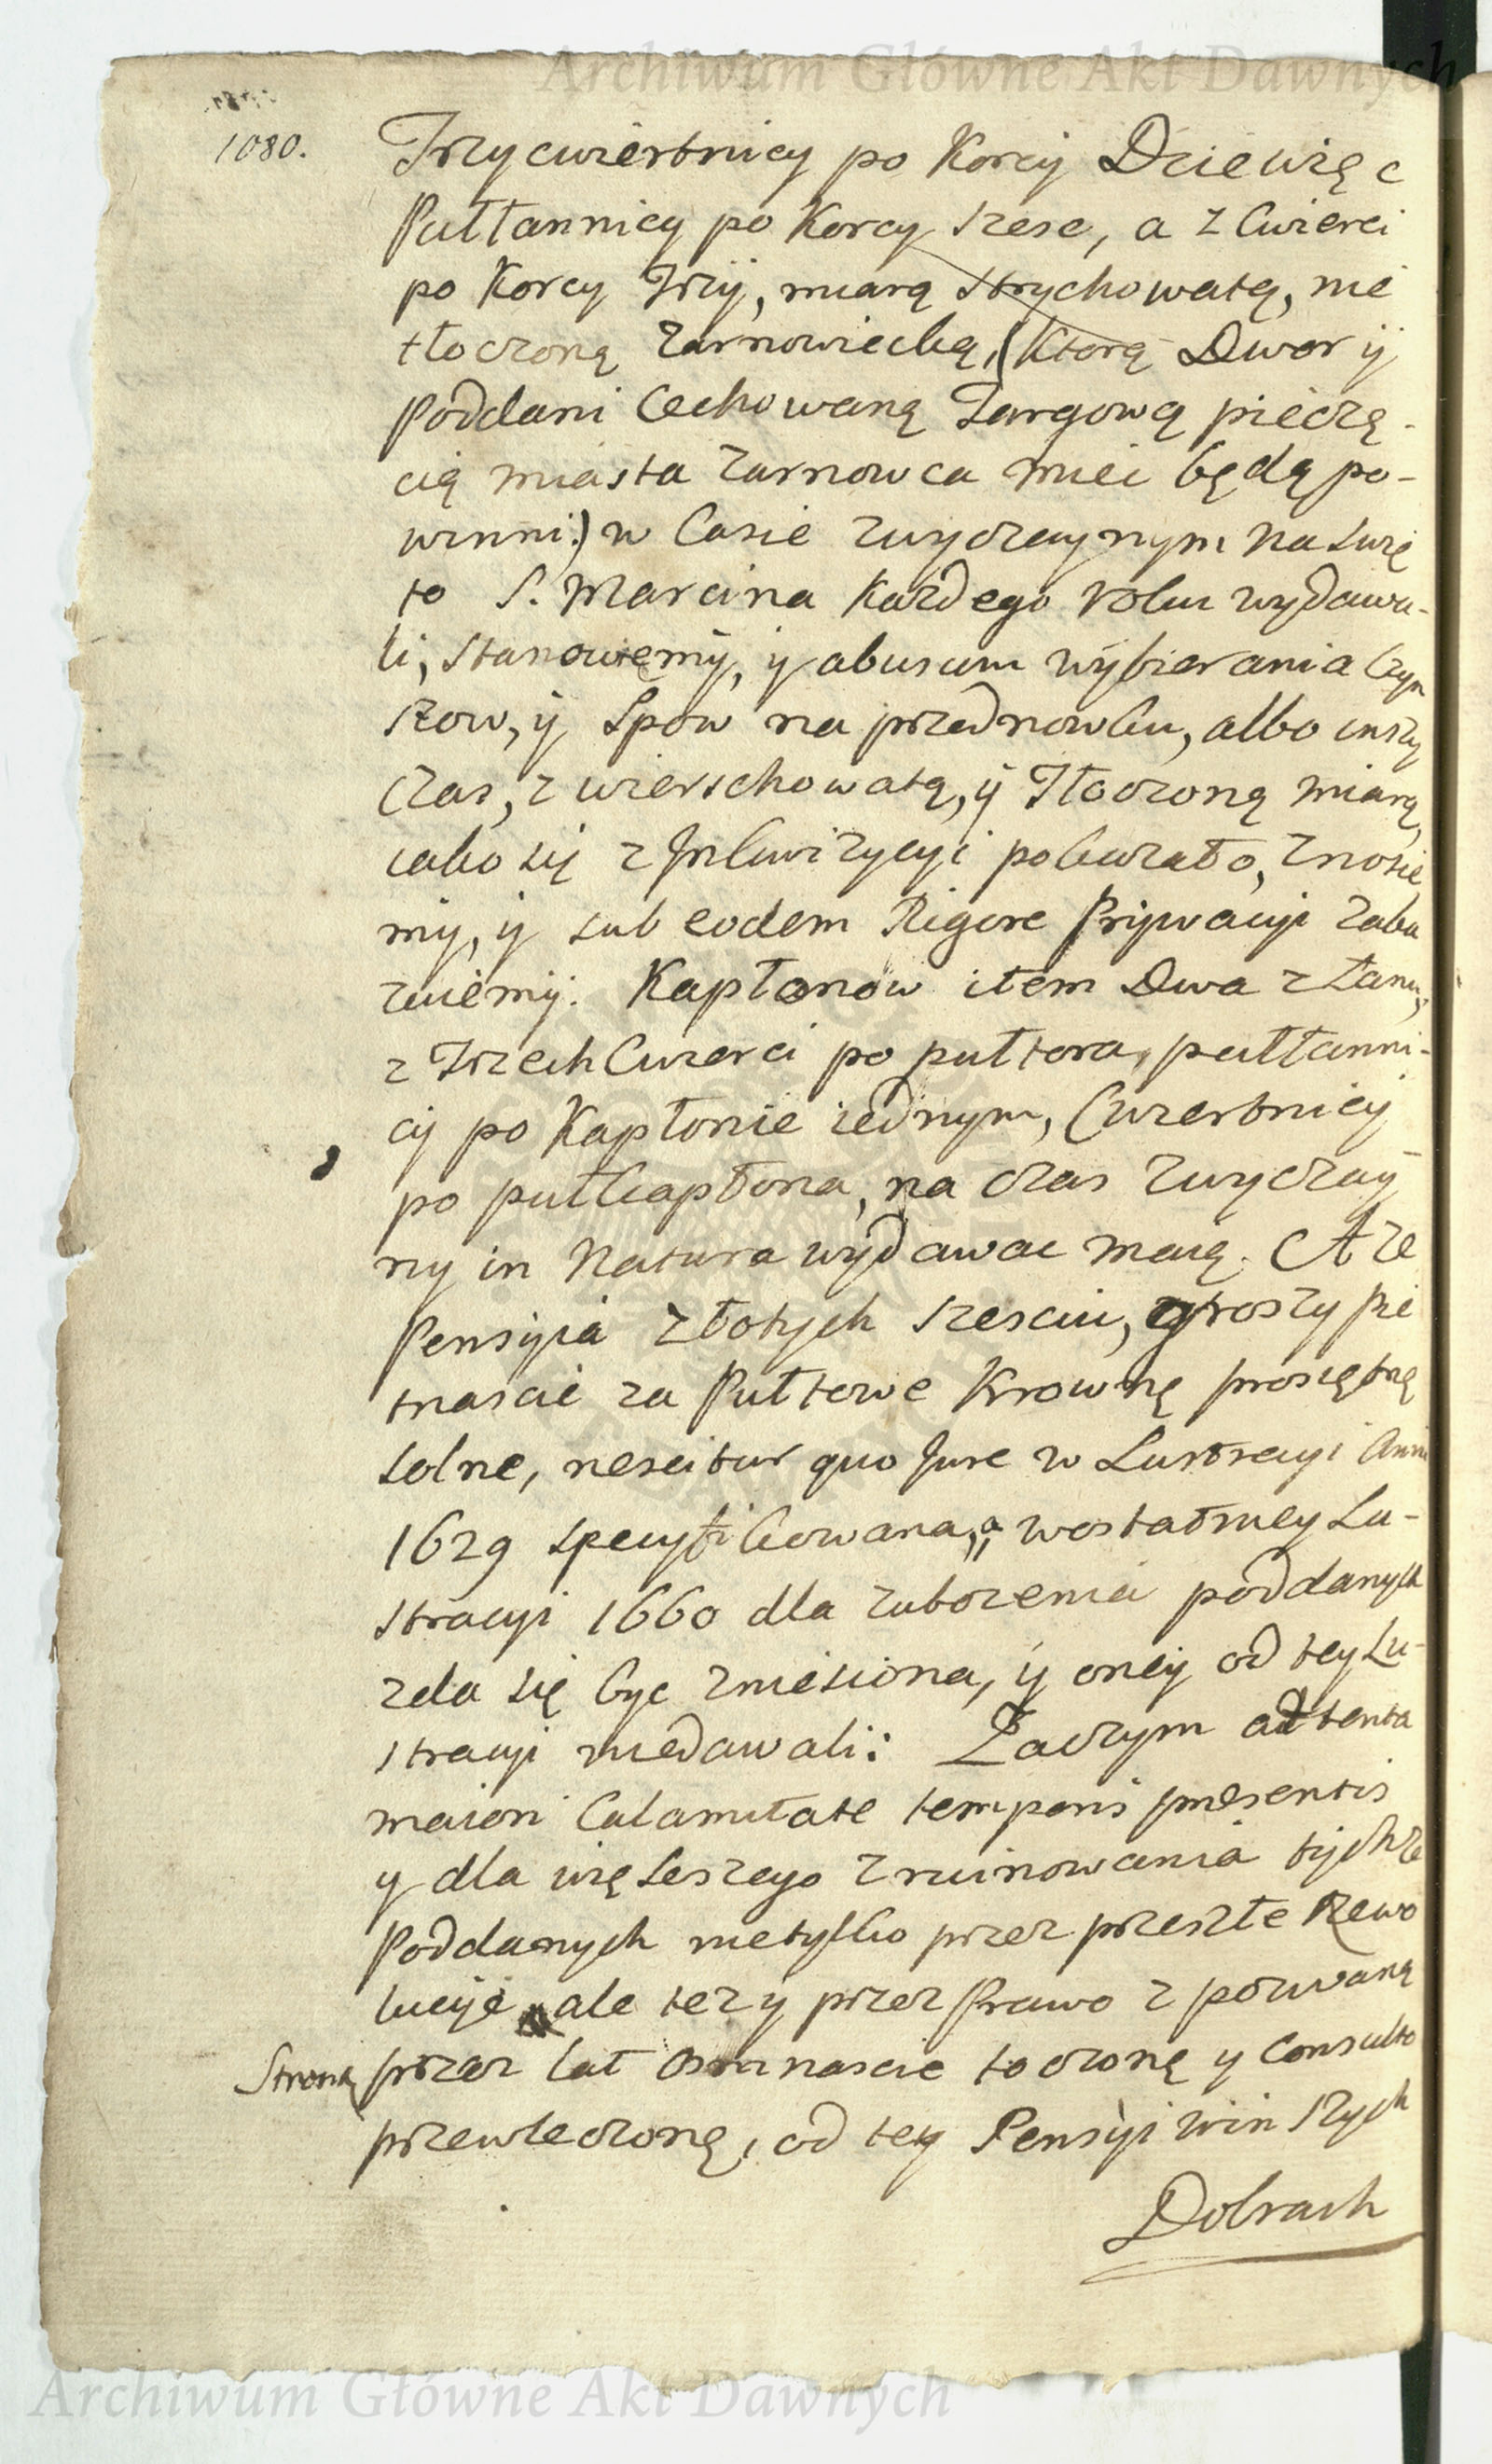 Archiwum Główne Akt Dawnych
1080.
Trzycwiertnicy po Korcÿ Dziewięc
Pułłannicy po Korcy szesc, a z Cwierci
po Korcy Trzÿ, miarą strychowatą, nie
tłoczoną Zarnowiecką, (Ktorą Dwor ÿ
Poddani Cechowaną Targową pieczę-
cią miasta Zarnowca miec będą po-
winni:) w Casie zwyczaynym na swię
to S. Marcina Kazdego roku wydawa-
li, stanowiemÿ, ÿ abusum wÿbierania Czyn
szow, ÿ Spow na przednowku, albo inszy
Czas, z wierschowatą, ÿ Tłoczoną miarą,
iako się z Inkwizycyi pokazało, znosie
mÿ, ÿ sub eodem Rigore Priwacyi zaka
zuiemÿ. Kapłonow item Dwa z Łanu,
z Trzech Cwierci po pułtora, pułłanni-
cÿ po Kapłonie iednym, Cwiertnicÿ
po pułkapłona, na czas zwyczaÿ
ny in Natura wÿdawac maią. A ze
Pensÿia złotych szesciu, groszy pie
tnascie za Pułtowe Krownę prosiętnę
solne, nescitur quo Jure w Lustracyi Anni
1629 specyfikowana, a wostatniey Lu-
stracyi 1660 dla zubozenia poddanych
zda się byc zniesiona, ÿ oneÿ od tey Lu-
stracyi niedawali: Zaczym attenta
maiori Calamitate temporis praesentis
y dla większego zruinowania tÿchze
Poddanych nietylko przez przeszłe Rewo
lucÿe ale tez y przez Prawo z pozwaną
Stroną przez lat osmnascie toczoną y Consulto
przewleczoną, od tey Pensÿi winszych
Dobrach
Archiwum Główne Akt Dawnych